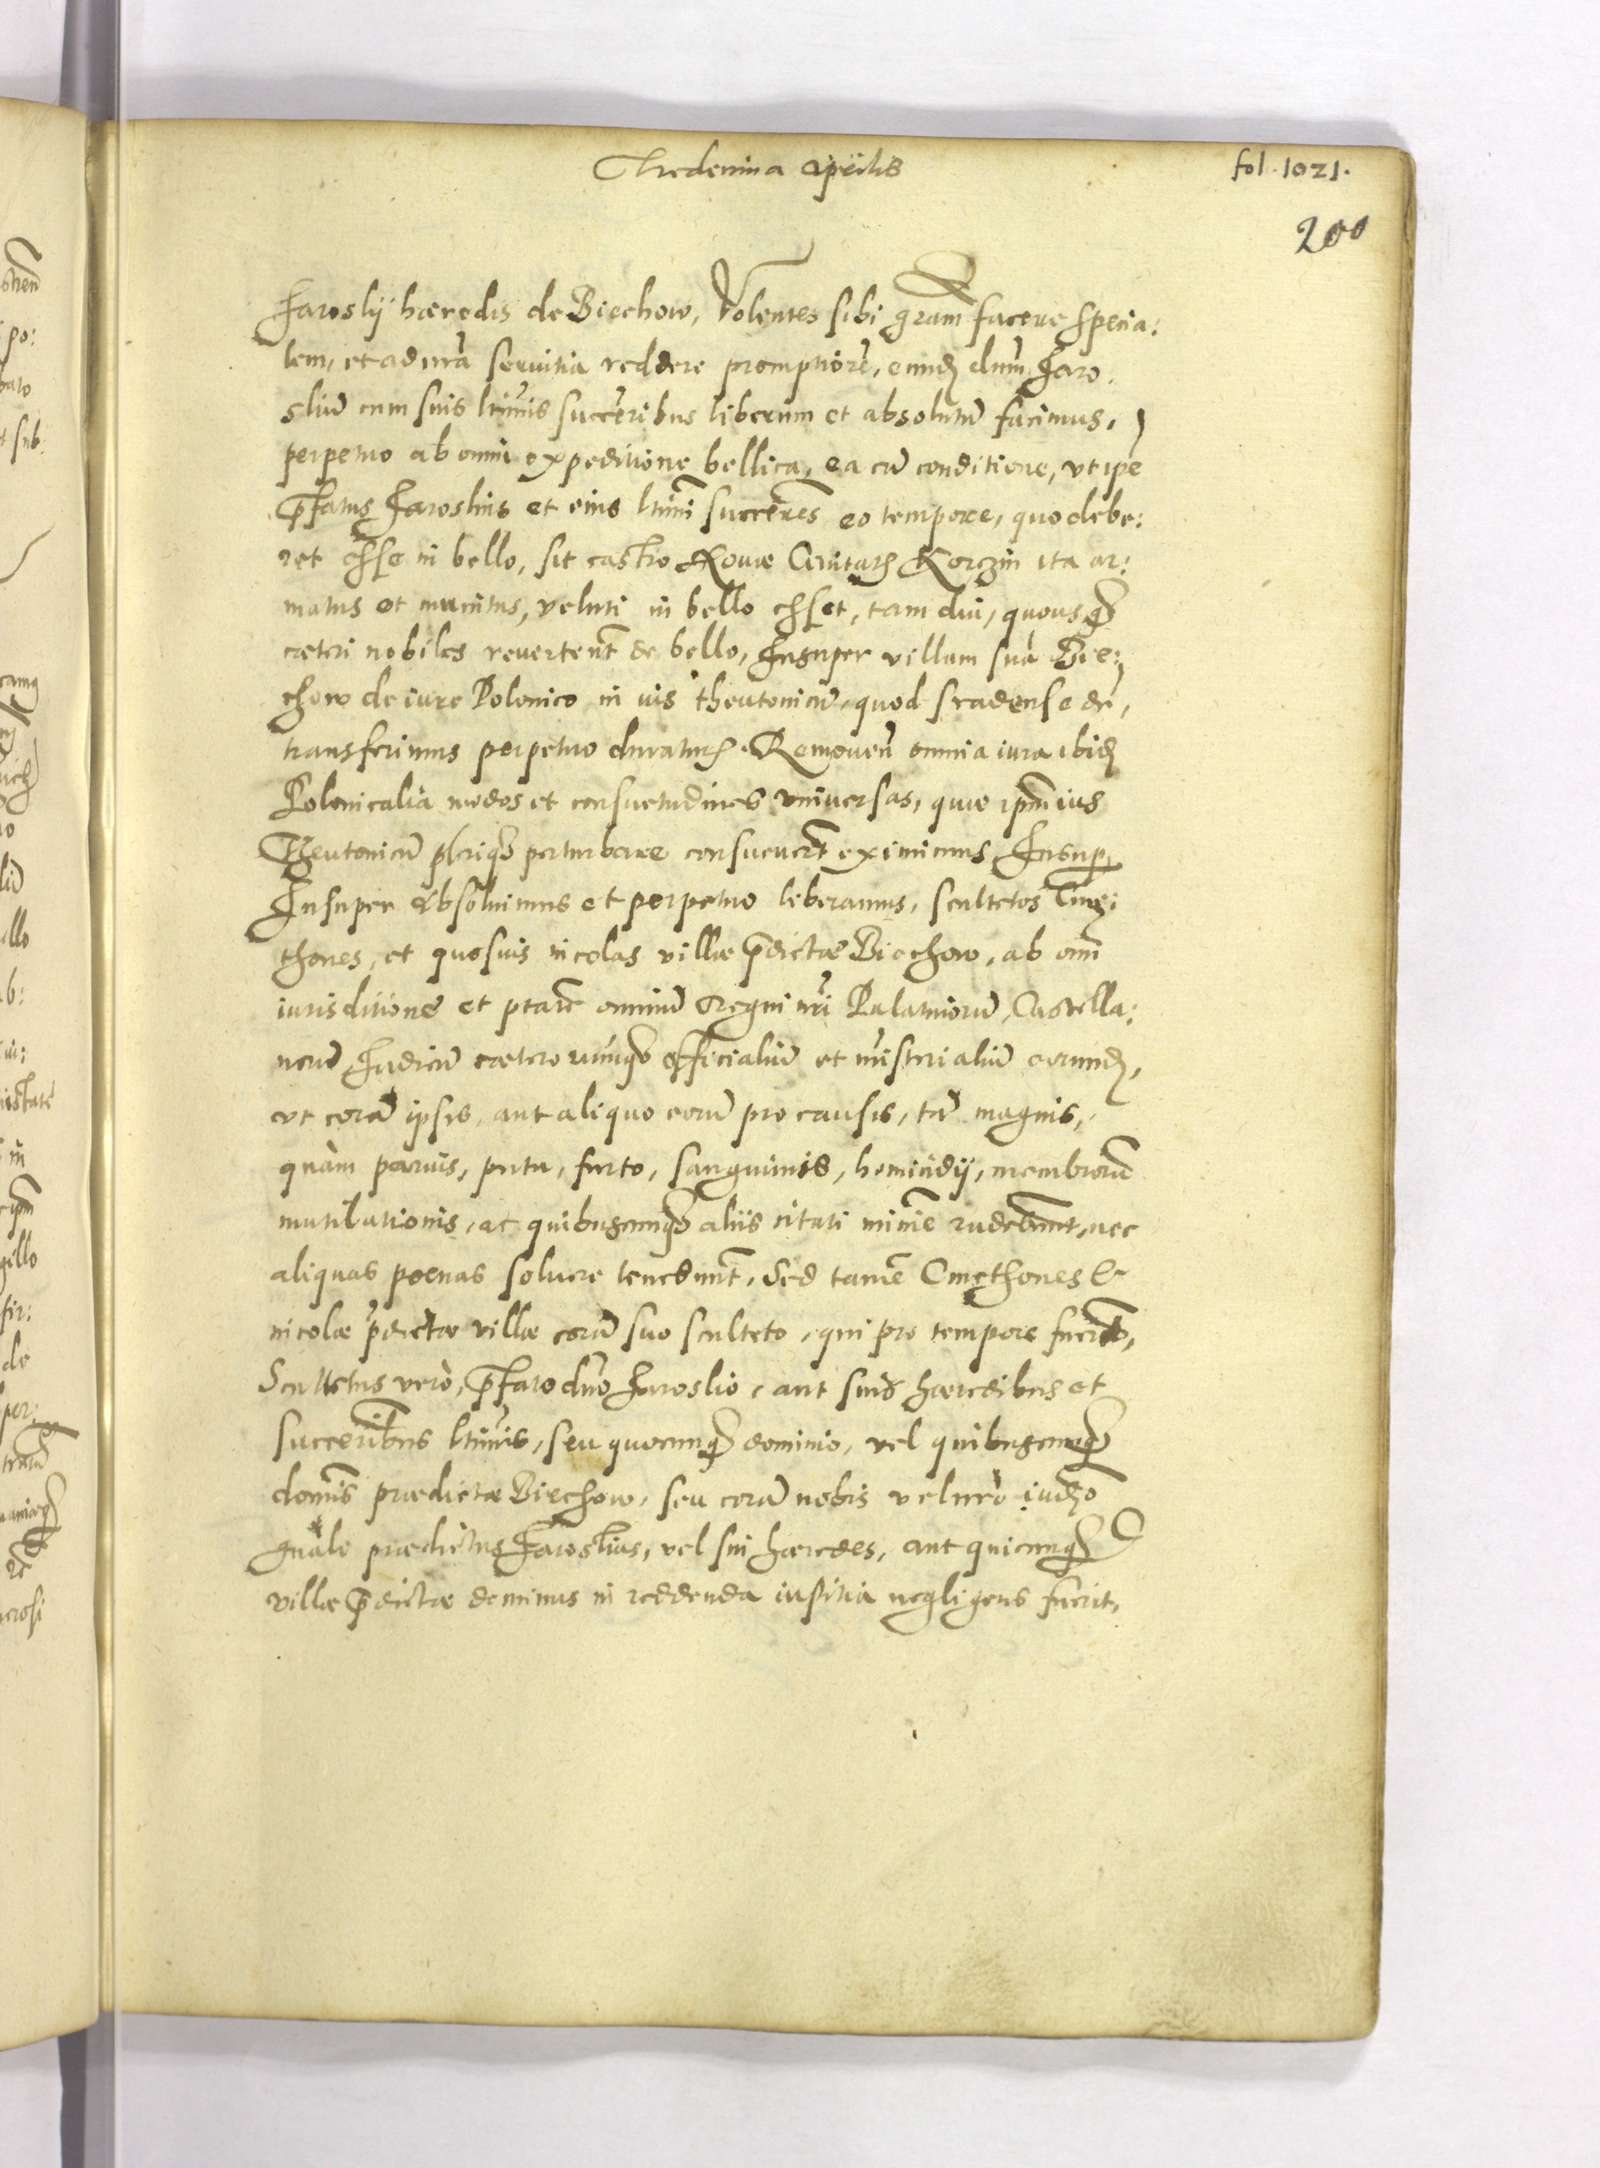 fol. 1021.
200
Jaroslÿ hæredis de Biechow, Volentes sibi gram̃ facere specia:
lem, et ad nr̃a servitia reddere promptiorẽ, eund. dnum Jaro
sliũ cum suis ltimis succerĩbus liberum et absolutũ facimus,
perpetuo ab omni expeditione bellica, ea cũ conditione, ut ipẽ
p̃fatus Jaroslius et eius ltimi succerẽs eo tempore, quo debe:
ret esse in bello, sit castro Novæ Civitatis Korczin ita ar:
matus et munitus, veluti in bello esset, tam diu, quousq
cæteri nobiles revertent̃ de bello, Insuper villam suã Bie:
chow de iure Polonico in ius theutonicũ, quod sradense dr̃,
transferimus perpetuo duratur. Removen̄ omnia iura ibid.
Polonicalia modos et consuetudines universas, quæ ipm̃ ius
Theutonicũ plerũq perturbare consuevert̃ eximimus Insup
Insuper absolvimus et perpetuo liberamus, scultetos Cme:
thones, et quosvis incolas villæ p̃dictæ Biechow, ab omĩ
iurisditione et ptãte omniũ Regni nr̃i Palatinorũ, Castella:
norũ Judicũ cætero rumq officialiũ et ministrialiũ eorund.,
ut corã ipsis, aut aliquo eorũ pro causis, tã magnis,
quàm parvis, puta, furto, sanguinis, homicidÿ, membrorũ
mutilationis, ac quibuscumq aliis citati minimẽ rñdebunt, nec
aliquas poenas solvere tenebunt̃, Sed tamẽ Cmethones &
incolæ p̃dictæ villæ corã suo sculteto, qui pro tempore fuerit,
Scultetus verò, p̃fato dño Jaroslio, aut suis hæredibus et
succerĩbus ltimis, seu quocunq dominio, vel quibuscunq
domis prædictæ Biechow, seu corã nobis vel nr̃o iudio
g̃nale prædictus Jaroslius, vel sui hæredes, aut quicunq
villæ p̃dictæ dominus in reddenda iustitia negligens fuerit,